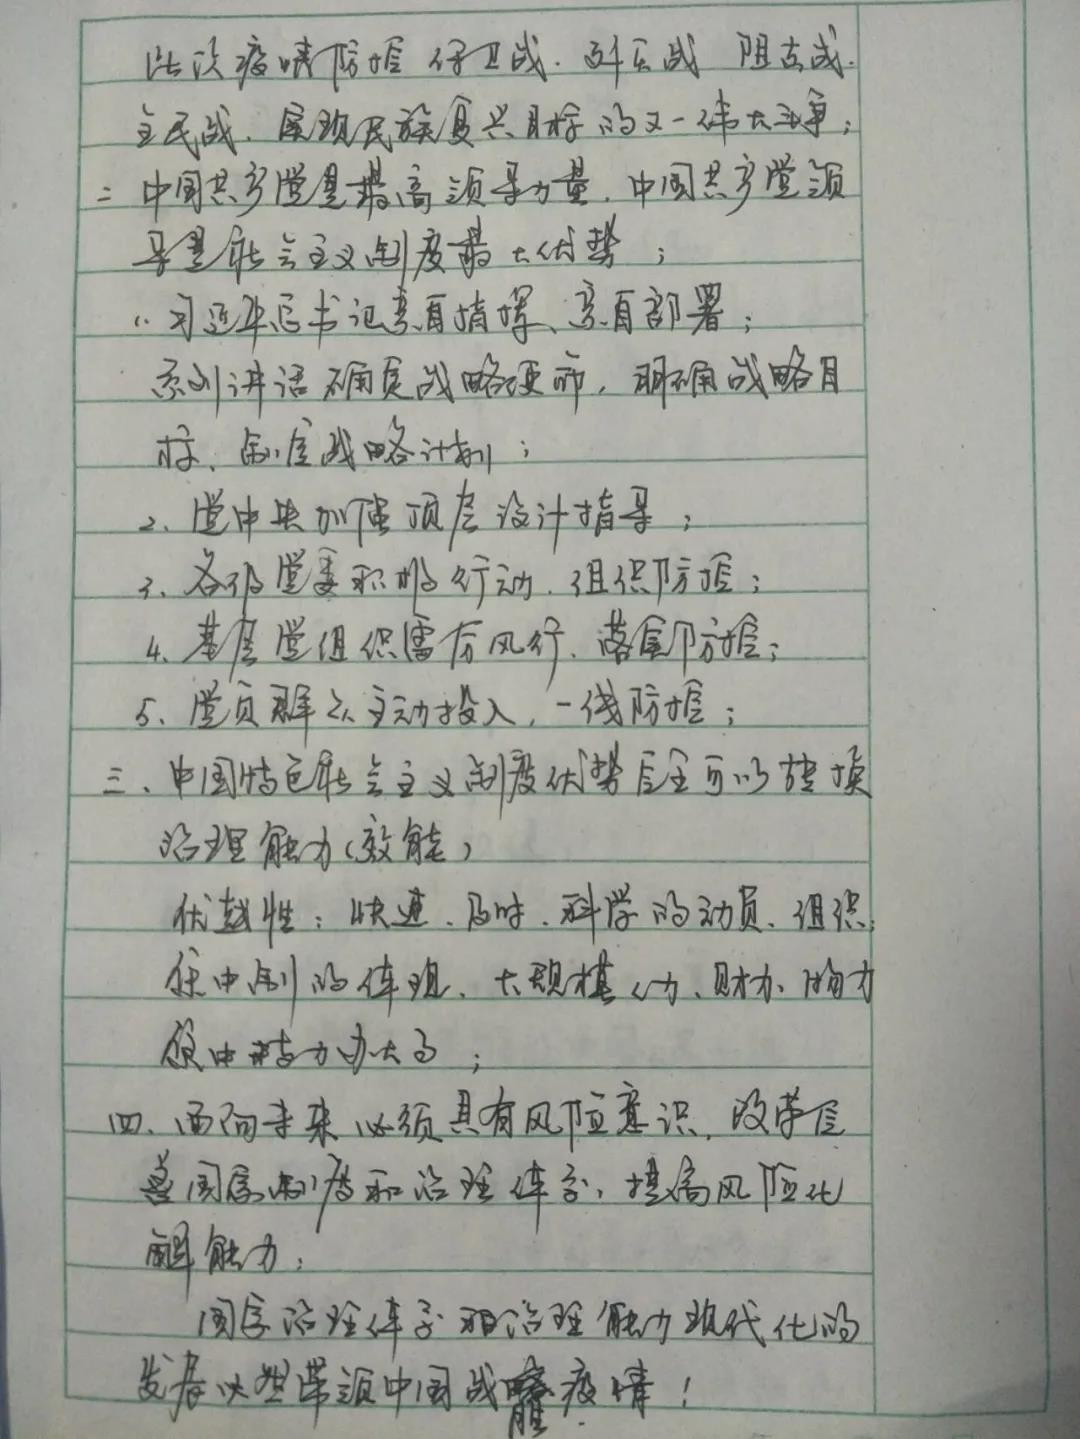 此次疫情防控保卫战、歼灭战、阻击战、
全民战,实现民族复兴目标的又一伟大斗争;
二、中国共产党是最高领导力量,中国共产党领
导是社会主义制度最大优势;
1、习近平总书记亲自指挥、亲自部署;
系列讲话确定战略,明确战略目
标、制定战略计划;
2、党中央加强顶层设计指导;
3、各级党委积极行动,组织防控;
4、基层党组织雷厉风行、落实防控;
5、党员群众主动投入,一线防控;
三、中国特色社会主义制度优势完全可以转换
治理能力(效能)
优越性:快速、及时、科学的动员、组织;
集中制的体现、大规模人力、财力、物力
集中精力办大事;
四、面向未来必须具有风险意识,改革完
善国家制度和治理体系,提高风险化
解能力;
国家治理体系和治理能力现代化的
发展必然带领中国战胜疫情!